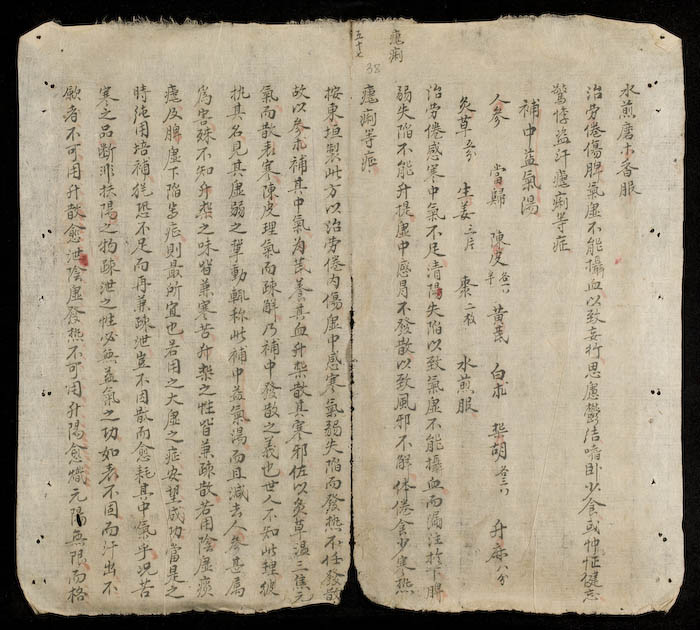 水煎磨木香服
治劳倦傷脾氣虚不能攝血以致妄行思慮鬱结嗜卧少食或怔忡健忘
驚悸盗汗瘧痢等症
補中益氣湯
人參 當歸 陳皮 各一 半 黄芪 白朮 柴胡 各三 升麻 八分
炙草 五分 生姜 三片 棗 二枚 水煎服
治劳倦感寒中氣不足清陽失陷以致氣虚不能攝血而漏注於下脾
弱失陷不能升提虚中感冒不發散以致風邪不解体倦食少寒热
瘧痢等症
瘧痢
五十七
38
按東垣製此方以治劳倦内傷虚中感寒氣弱失陷而發热不任發散
故以參朮補其中氣为芪養其血升柴散其寒邪佐以炙草温三焦元
氣而散表寒陳皮理氣而疎解乃補中發散之義也世人不知此理彼
执其名見其虚弱之軰動輒称此補中益氣湯而且減去人參甚属
為害殊不知升柴之味皆兼寒苦升柴之性皆兼疎散若用陰虚痰
瘧及脾虚下陷等症則最所宜也若用之大虚之症安望成功當是之
時纯用培補犹恐不足而再兼疎泄豈不因散而愈耗其中氣乎况苦
寒之品断非扶陽之物疎泄之性必無益氣之功如表不固而汗出不
歛者不可用升散愈泄陰虚發热不可用升陽愈熾元陽無限而格